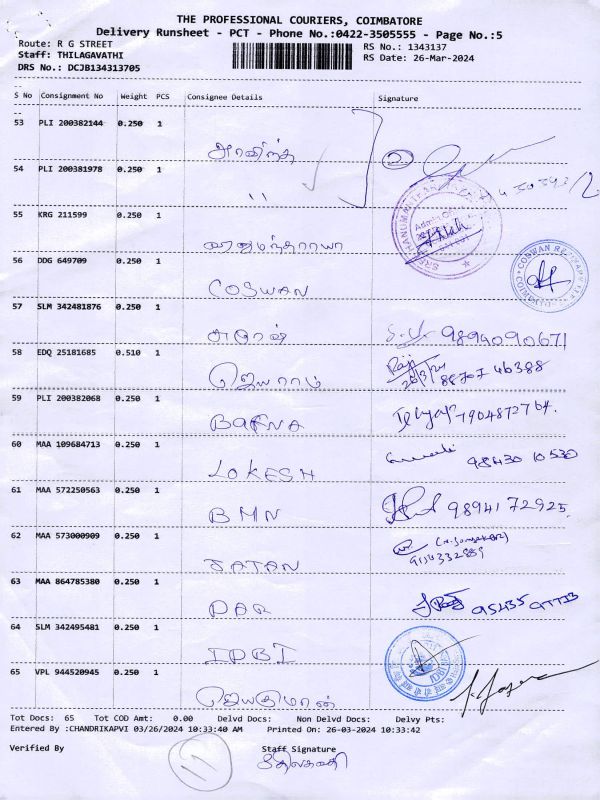 THE PROFESSIONAL COURIERS, COIMBATORE
Delivery Runsheet - PCT - Phone No.:0422-3505555 - Page No.:5
Route: R G STREET RS No.: 1343137
Staff: THILAGAVATHI RS Date: 26-Mar-2024
DRS No.: DCJB134313705
S No Consignment No Weight PCS Consignee Details Signature
53 PLI 200382144 0.250 1
அரவிந்த்
54 PLI 200381978 0.250 1
ıı
55 KRG 211599 0.250 1
56 DDG 649709 0.250 1
COSWAN
57 SLM 342481876 0.250 1
9894090671
58 EDQ 25181685 0.510 1
ஜெயராம் 26/3/24 88707 46388
59 PLI 200382068 0.250 1
BAFNA
60 MAA 109684713 0.250 1
LOKESH 98430 10530
61 MAA 572250563 0.250 1
BMN 98941 72925
62 MAA 573000909 0.250 1
JATAN
63 MAA 864785380 0.250 1
DAR
64 SLM 342495481 0.250 1
IDBI
65 VPL 944520945 0.250 1
Tot Docs: 65 Tot COD Amt: 0.00 Delvd Docs: Non Delvd Docs: Delvy Pts:
Entered By :CHANDRIKAPVI 03/26/2024 10:33:40 AM Printed On: 26-03-2024 10:33:42
Verified By Staff Signature
11 திலகவதி